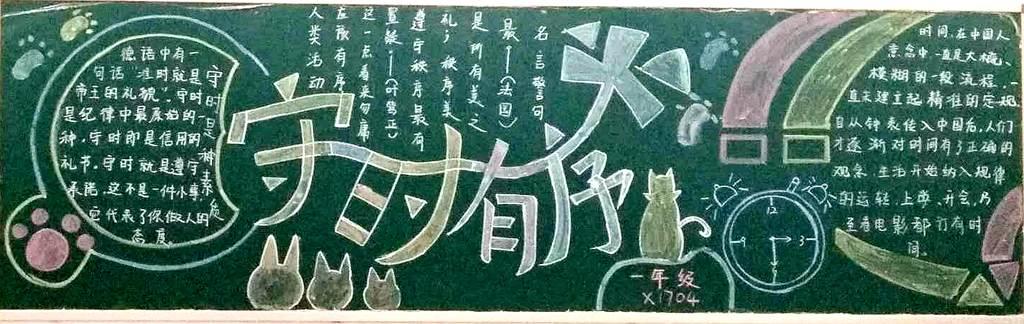 德语中有一
句话“准时就是
帝王的礼貌”，守时
是纪律中最原始的一
种，守时即是信用的
礼节，守时就是遵守
承诺，这不是一件小事，
它代表了你做人的
态度。
守时是种素质
守时有序
名言警句
人类活动
有序
这一点看来
置疑——
遵守秩序最有
礼；秩序美
是所有美之
最——(法国)
一年级
X1704
12
3
6
9
时间，在中国人
意念中一直是大概、
模糊的一段流程，一
直未建立起精准的定规，
自从钟表传入中国后，人们
才逐渐对时间有了正确的
观念，生活开始纳入规律
的运转，上学、开会，乃
至看电影都订有时
间。